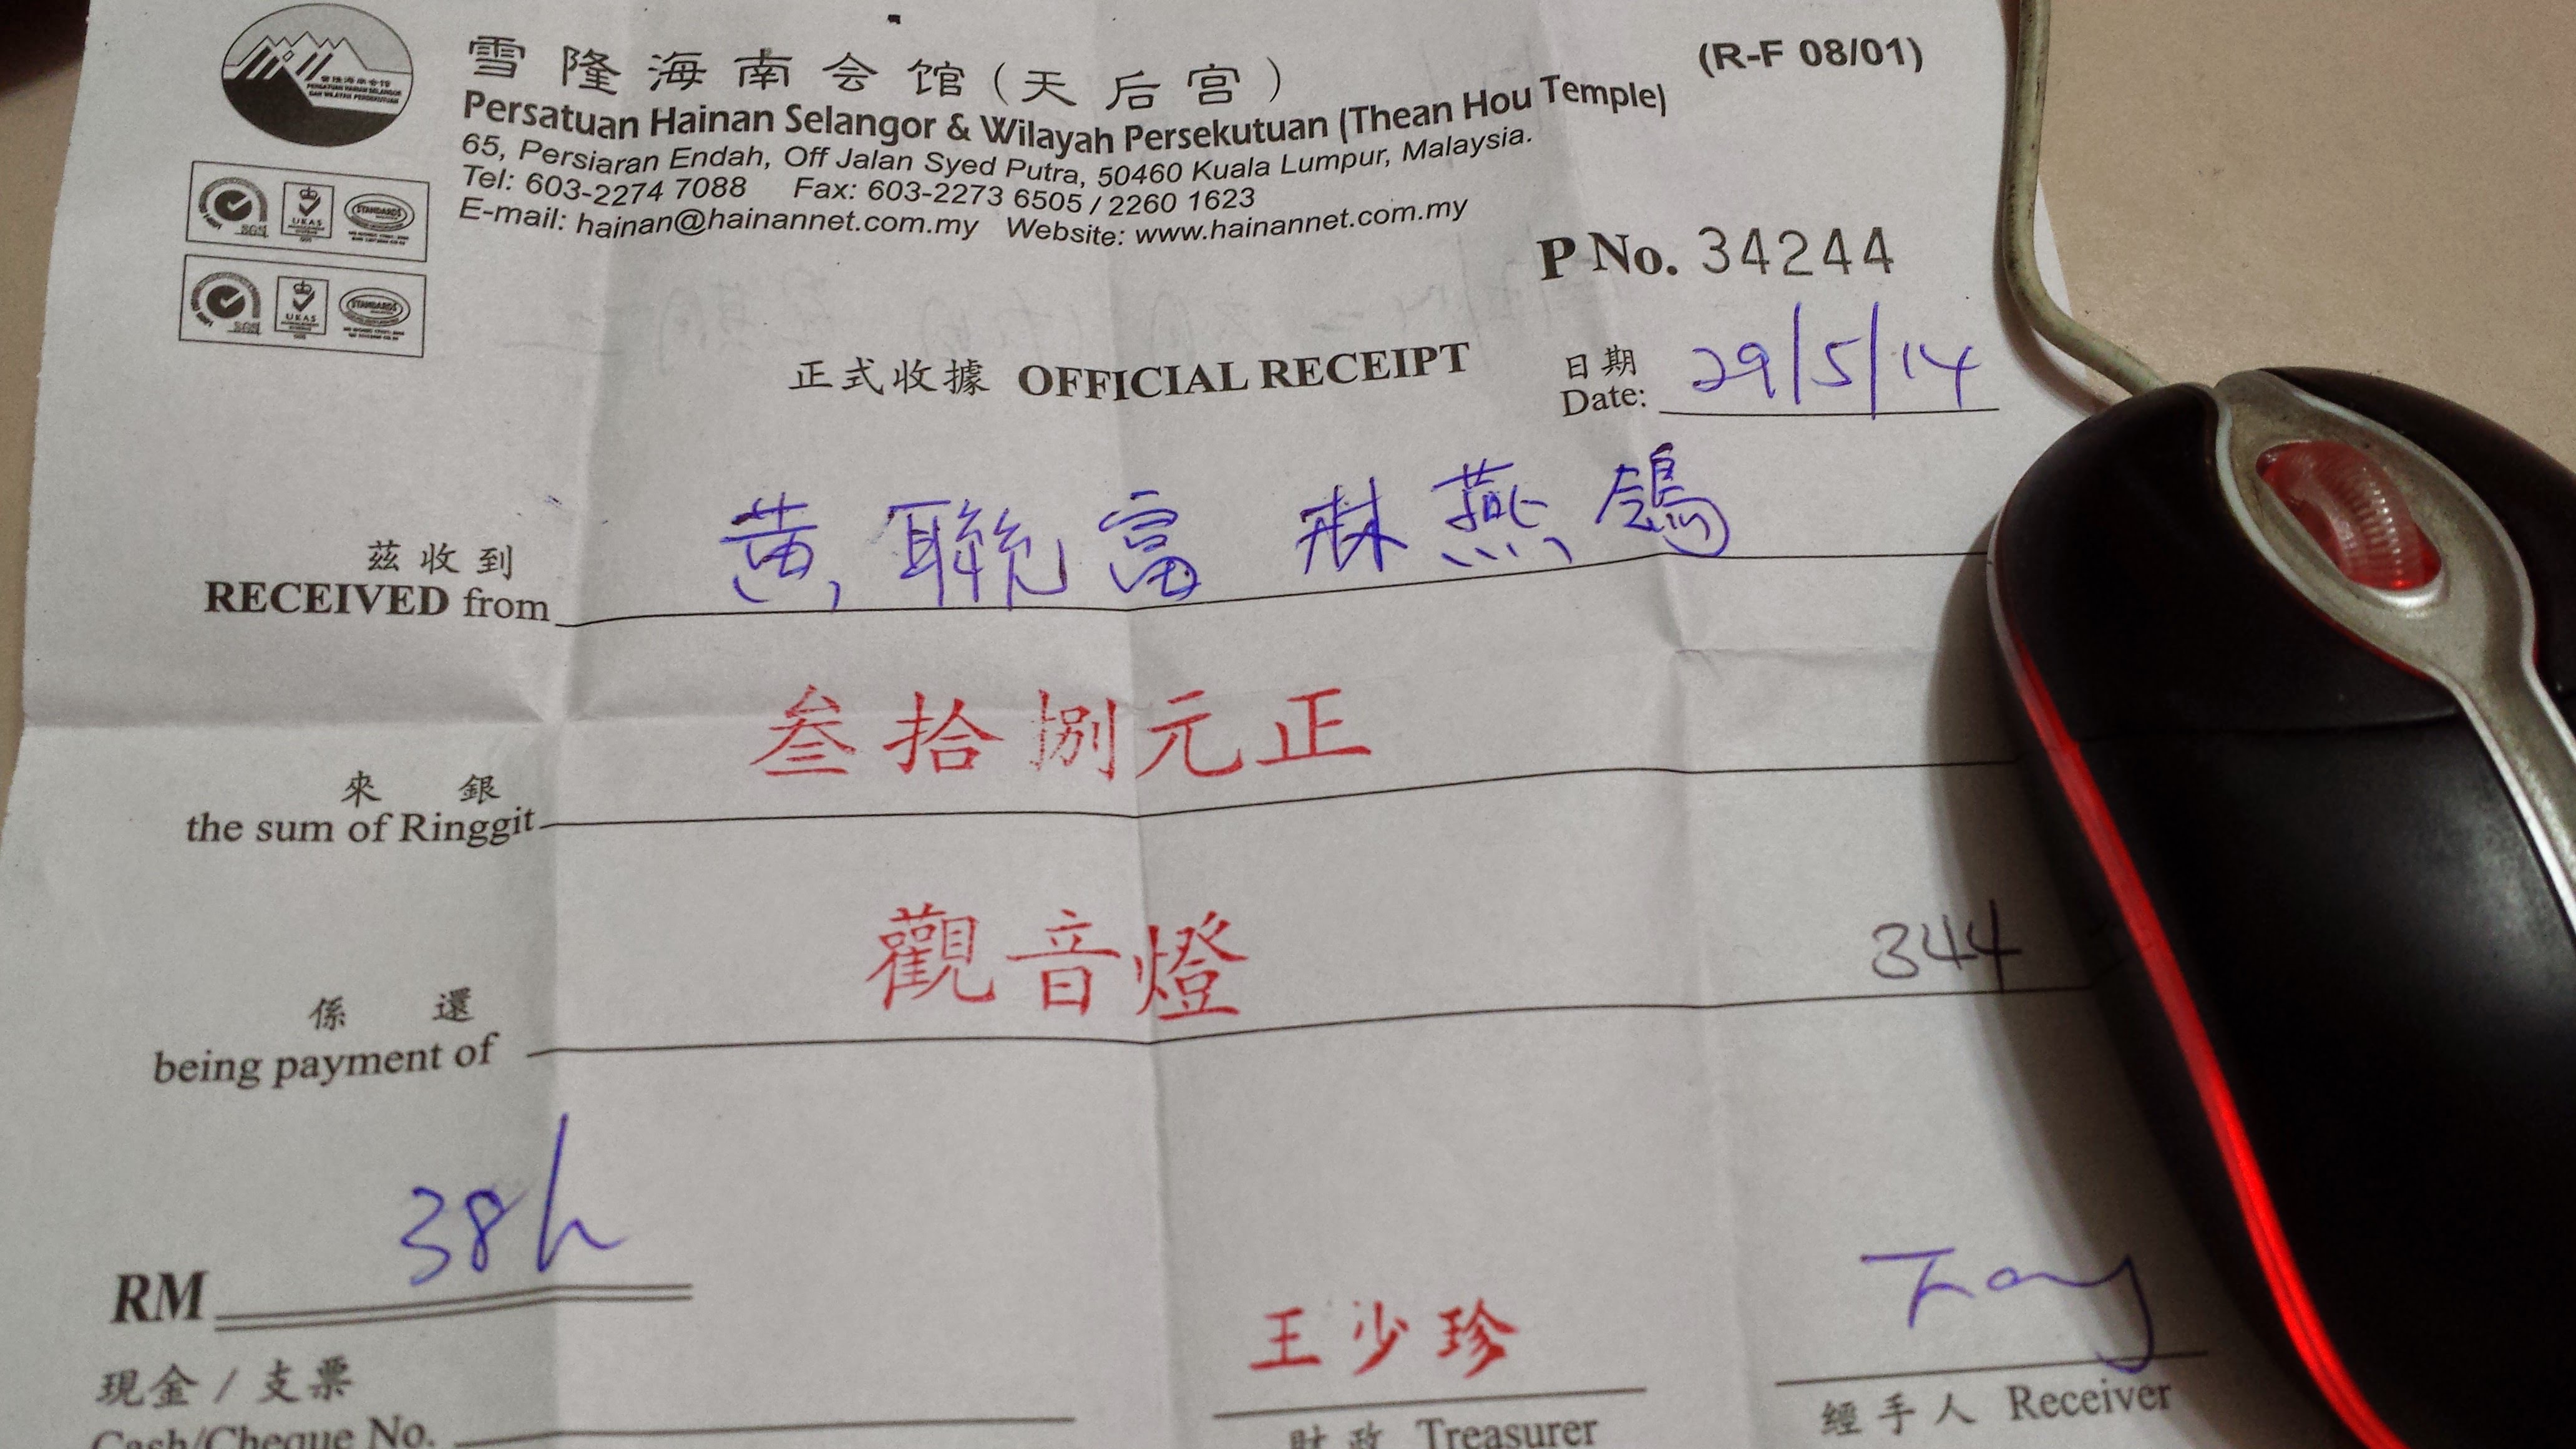 雪隆海南会馆(天后宫)
(R-F 08/01)
Persatuan Hainan Selangor & Wilayah Persekutuan (Thean Hou Temple)
65, Persiaran Endah, Off Jalan Syed Putra, 50460 Kuala Lumpur, Malaysia.
Tel: 603-2274 7088 Fax: 603-2273 6505 / 2260 1623
E-mail: hainan@hainannet.com.my Website: www.hainannet.com.my
SGS UKAS STANDARDS
SGS UKAS STANDARDS
P No. 34244
正式收據 OFFICIAL RECEIPT
日期
Date: 29/5/14
茲收到
RECEIVED from 黄聯富 燕鴿
叁拾捌元正
來銀
the sum of Ringgit
觀音燈 344
係還
being payment of
RM 38
王少珍
現金 / 支票
Cash/Cheque No.
財政 Treasurer
經手人 Receiver